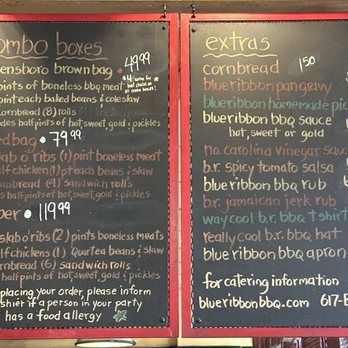 ombo boxes
ensboro brown bag • 49.99
ints of boneless bbq meat
pint each baked beans & coleslaw
ornbread (8) rolls
des half pints of hot, sweet, gold & pickles
ed bag • 79.99
lab o' ribs (1) pint boneless meat
alf chicken (1) pt each beans & slaw
ornbread (6) Sandwich rolls
half pints of hot, sweet, gold & pickles
per • 119.99
slab o' ribs (2) pints boneless meats
alf chickens (1) Quart ea beans & slaw
rnbread (6) Sandwich rolls
alf pints of hot, sweet, gold & pickles
placing your order, please inform
shier if a person in your party
has a food allergy
extras
cornbread 1.50
blue ribbon pan gravy
blue ribbon homemade pic
blue ribbon bbq sauce
hot, sweet or gold
no. carolina vinegar sauc
b.r. spicy tomato salsa
blue ribbon bbq rub
b.r. jamaican jerk rub
way cool b.r. bbq t shirt
really cool b.r. bbq hat
blue ribbon bbq apron
for catering information
blueribbonbbq.com 617-